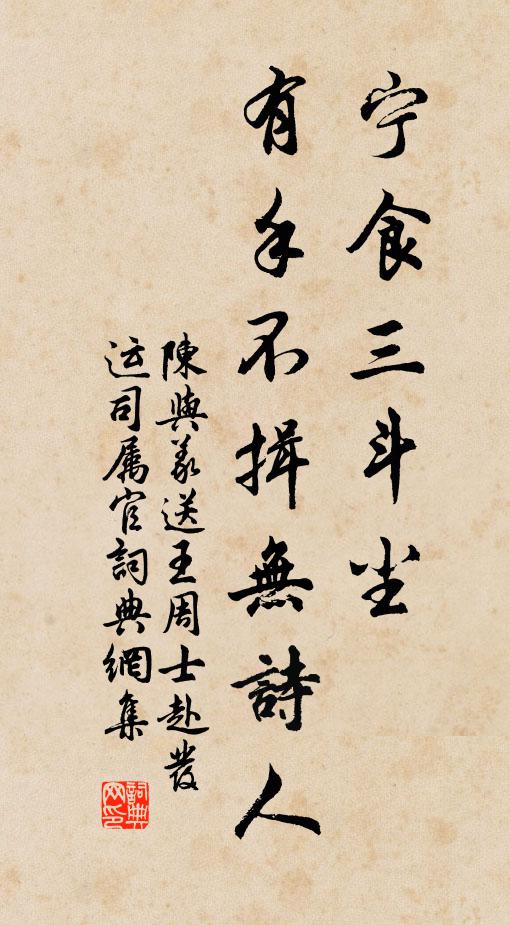 宁食三斗尘
有手不揖無詩人
陳與義送王周士赴發
运司属官詞典網集
詞典网印